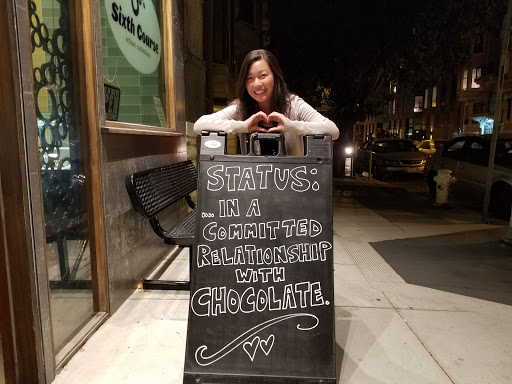 Sixth Course
STATUS:
... IN A
COMMITTED
RELATIONSHIP
WITH
CHOCOLATE.